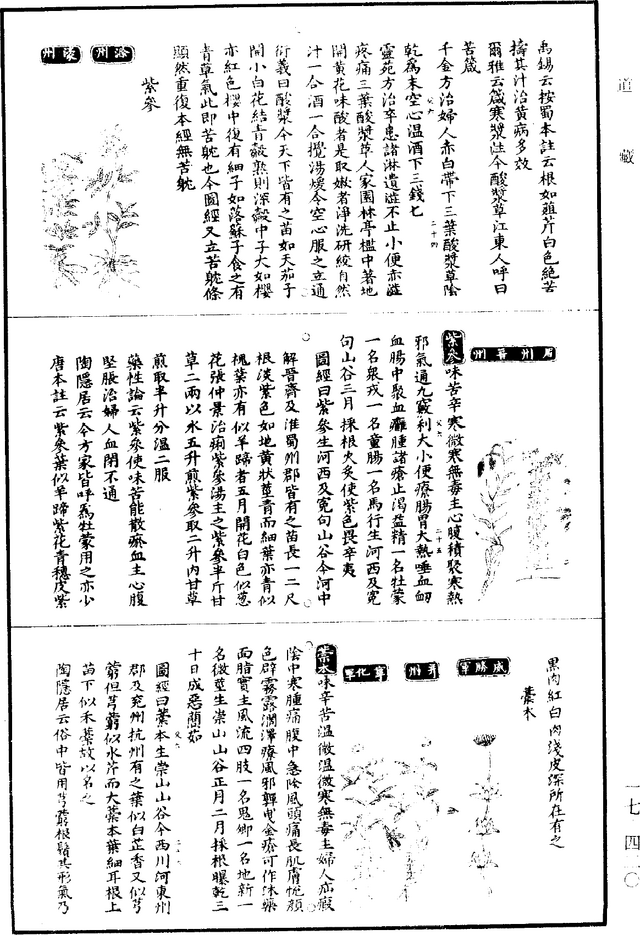 道藏
禹錫云按蜀本註云根如葅芹白色絕苦
擣其汁治黃病多效
爾雅云葴寒漿註今酸漿草江東人呼曰
苦葴
千金方治婦人赤白帶下三葉酸漿草陰
乾爲末空心溫酒下三錢匕
靈苑方治卒患諸淋遺瀝不止小便赤澁
疼痛三葉酸漿草人家園林亭檻中著地
開黃花味酸者是取嫩者淨洗研絞自然
汁一合酒一合攪湯煖令空心服之立通
衍義曰酸漿今天下皆有之苗如天茄子
開小白花結青殼熟則深殼中子大如櫻
亦紅色櫻中復有細子如落蘇子食之有
青草氣此即苦躭也今圖經又立苦躭條
顯然重復本經無苦躭
紫參
滁州
濠州
晉州
紫參味苦辛寒微寒無毒主心腹積聚寒熱
邪氣通九竅利大小便療腸胃大熱唾血衂
血腸中聚血癰腫諸瘡止渴益精一名牡蒙
一名衆戎一名童腸一名馬行生河西及寃
句山谷三月採根火炙使紫色畏辛夷
圖經曰紫參生河西及寃句山谷今河中
解晉齊及淮蜀州郡皆有之苗長一二尺
根淡紫色如地黃狀莖青而細葉亦青似
槐葉亦有似羊蹄者五月開花白色似葱
花張仲景治痢紫參湯主之紫參半斤甘
草二兩以水五升煎紫參取二升內甘草
煎取半升分溫二服
藥性論云紫參使味苦能散瘀血主心腹
堅脹治婦人血閉不通
陶隱居云今方家皆呼爲牡蒙用之亦少
唐本註云紫參葉似羊蹄紫花青穗皮紫
黑肉紅白肉淺皮深所在有之
藁本
威勝軍
并州
寧化軍
藁本味辛苦溫微溫微寒無毒主婦人疝瘕
陰中寒腫痛腹中急除風頭痛長肌膚悅顏
色辟霧露潤澤療風邪嚲曳金瘡可作沐藥
面脂實主風流四肢一名鬼卿一名地新一
名微莖生崇山山谷正月二月採根曝乾三
十日成惡䕡茹
圖經曰藁本生崇山山谷今西川河東州
郡及兗州杭州有之葉似白芷香又似芎
藭但芎藭似水芹而大藁本葉細耳根上
苗下似禾藁故以名之
陶隱居云俗中皆用芎藭根鬚其形氣乃
一七 四三〇